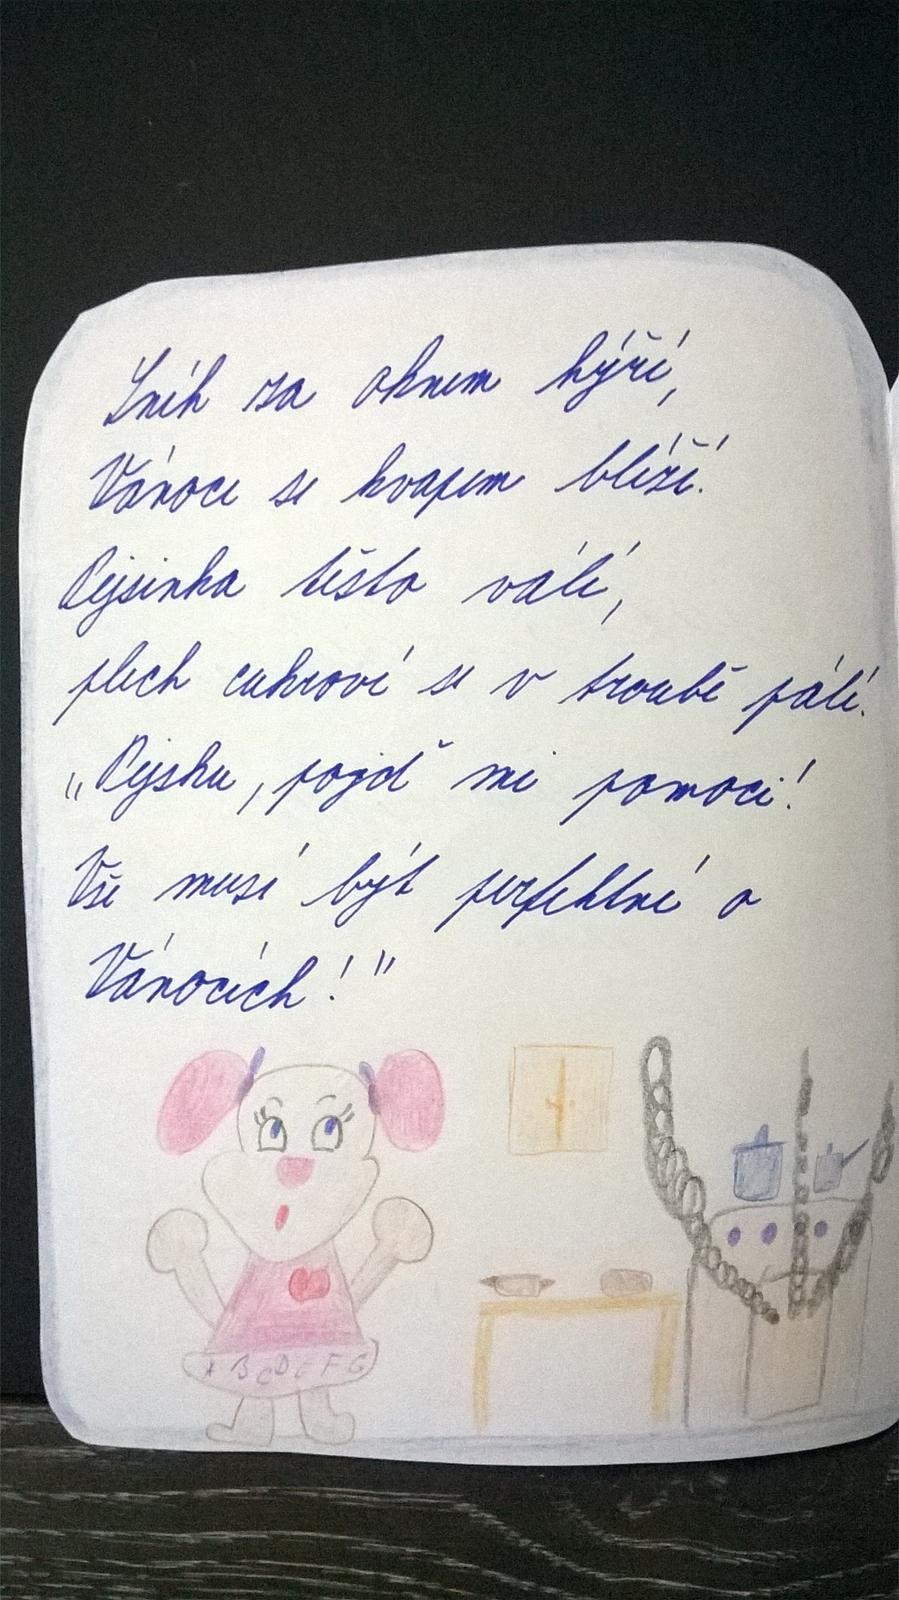 Sníh za oknem hýří,
Vánoce se kvapem blíží.
Pejsinka těsto válí,
plech cukroví se v troubě pálí.
„Pejsku, pojď mi pomoci!
Vše musí být perfektní o
Vánocích!"
A B C D E F G